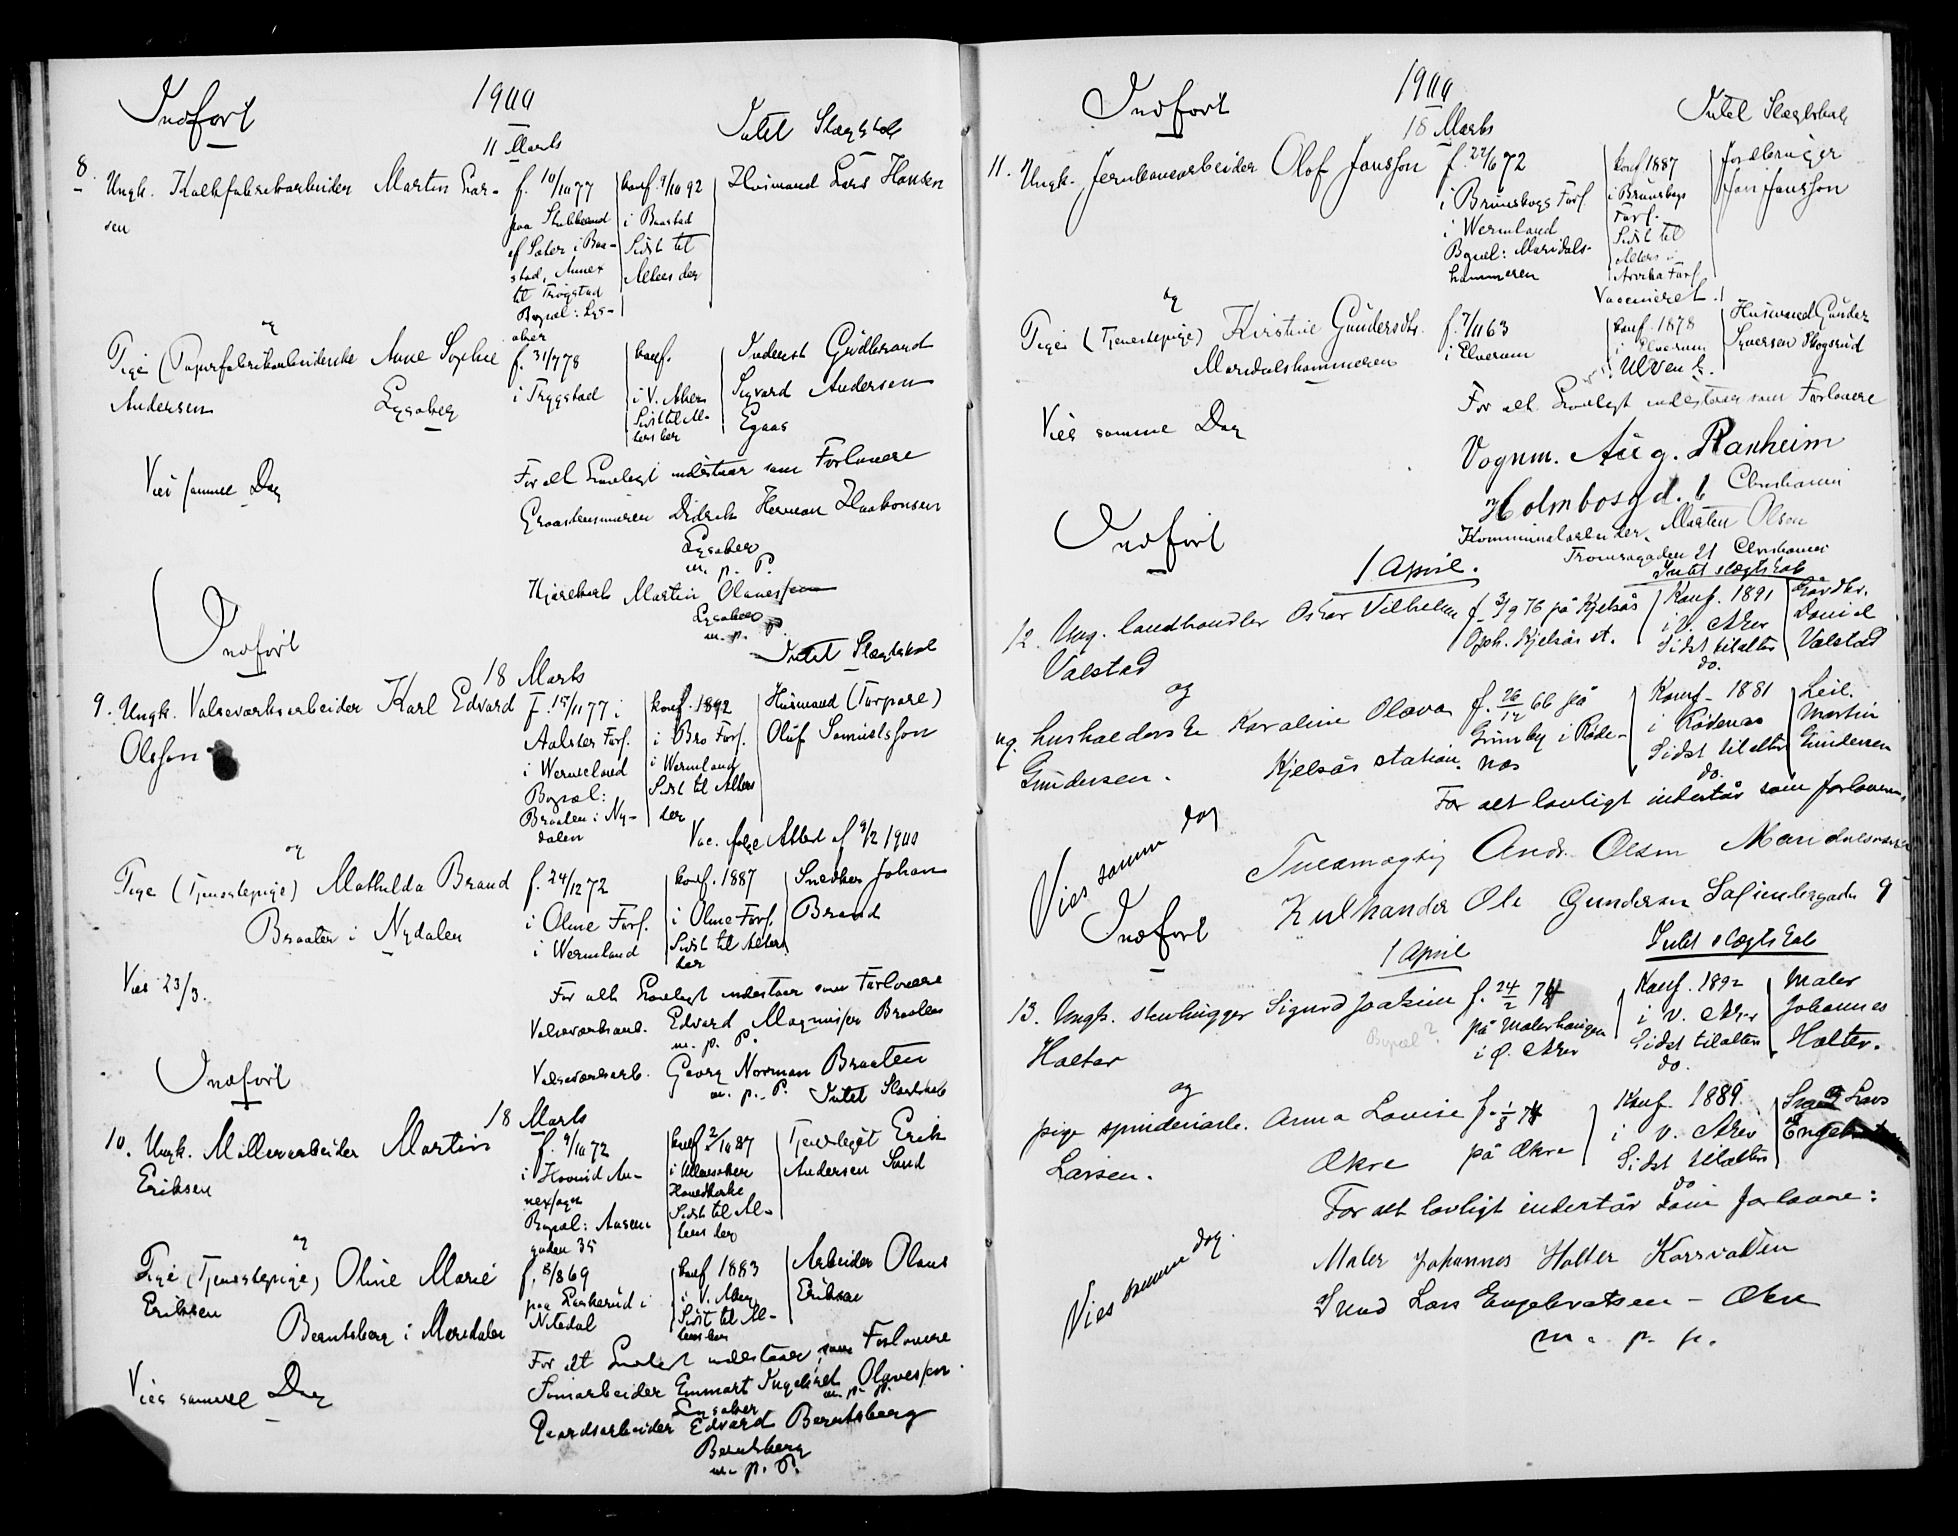 Indført
1900
11 Marts
Intet Slægtskab
8.
Ungk. Kalkfabrikarbeider Martin Lar-
sen
f. 10/10 77
paa Stubberud
af Sæter i Baa-
stad, Annex
til Trøgstad
Bopæl: Lys-
aker
konf. 9/10 92
i Baastad
Sidst til
Alters der
Husmand Lars Hansen
og
Pige (Papirfabrikarbeiderske Anne Sophie
Andersen
Lysaker
f. 31/7 78
i Trygstad
konf.
i V. Aker
Sidst til Al-
ters her
Inderst Gudbrand
Sigvard Andersen
Egaas
Viet samme Dag
For alt Lovligt indestaar som Forlovere
Graastensmuren Didrik Herman Haakonsen
Lysaker
m. p. P.
Kjørekarl Martin Olaves/en
Lysaker
m. p. P.
Indført
18 Marts
Intet Slægtskab
9. Ungk. Valseværksarbeider Karl Edvard
Olsson
f. 15/11 77 i
Aalster Fors.
i Wermeland
Bopæl:
Braaten i Ny-
dalen
konf. 1892
i Bro Fors.
i Wermland
Sidst til Alters
her
Husmand (Torpare)
Oluf Samuelsson
Vac. ifølge Attest af 9/2 1900
og
Pige (Tjenestepige) Mathilda Brand
Braaten i Nydalen
f. 24/12 72
i Ølme Fors.
i Wermland
konf. 1887
i Ølme Fors.
Sidst til Alters
her
Snedker Johan
Brand
Viet 23/3.
For alt Lovligt indestaar som Forlovere
Valseværksarb. Edvard Magnus/en Braaten
m. p. P.
Valseværksarb. Georg Norman Braaten
m. p. P.
Indført
18 Marts
Intet Slægtskab
10. Ungk. Møllerarbeider Martin
Eriksen
f. 9/10 72
i Hovind An-
nex/ogn
Bopæl: Aasen
gaden 35
konf 2/10 87
i Ullensaker
Hovedkirke
Sidst til Al-
ters her
Tjenstegut Erik
Andersen Sand
og
Pige (Tjenestepige) Oline Marie
Eriksen
Berntsberg i Maridalen
f. 8/8 69
paa i
Nitedal
konf 1883
i V. Aker
Sidst til Al-
ters her
Arbeider Olaus
Eriksen
Viet samme Dag
For alt Lovligt indestaar som Forlovere
Emmart Ingebret Olaves/en
m. p. P.
Lysaker
Gaardsarbeider Edvard Berntsberg
Berntsberg
m. p. P.
Indført
1900
18 Marts
Intet Slægtskab
11. Ungk. Jernbanearbeider Olof Jansson
f. 22/6 72
i Brunskogs Fors.
i Wermland
Bopæl: Maridals-
hammeren
konf 1887
i Brunskogs
Fors.
Sidst til
Alters i
Arvika Fors.
Vaccineret.
Jordbruger
Jan Jansson
og
Pige (Tjenestepige) Kirstine Gundersdtr.
Maridalshammeren
f. 7/11 63
i Elverum
konf. 1878
i Elverum
Husmand Gunder
Syversen Skogsrud
i Ulven
Viet samme Dag
For alt Lovligt indestaar som Forlovere
Vognm. Aug. Ranheim
Holmbosgd. 6 Christiania
og
Kommunalarbeider Martin Olsen
Tromsøgaden 21 Christiania
Indført
1 April.
Intet slægtskab
12. Ung. landhandler Oskar Vilhelm
Valstad
f. 3/9 76 på Kjelsås
Oph. Kjelsås st.
Konf. 1891
i V. Aker
Sidst til alters
do.
Gårdbr.
Daniel
Valstad
og
ug. husholderske Karoline Olava
Gundersen.
Kjelsås station.
f. 26/12 66 på
Grimby i Røde-
næs
Konf. 1881
i Rødenæs
Sidst til alters
do.
Leil.
Martin
Gundersen
Viet samme dag
For alt lovligt indestår som forlovere,
Tuesmægtig Andr. Olsen Maridalsveien
Kulhandler Ole Gundersen Sofienberggaden 9
Indført
1 April
Intet slægtskab
13. Ungk. stenhugger Sigurd Joakim
Halter
f. 24/2 74
på Malerhaugen
i Ø. Aker
Bopæl?
Konf. 1892
i V. Aker
Sidst til alters
do.
Maler
Johannes
Halter.
og
pige spinderiarb. Anna Lovise
Larsen.
Økre
f. 1/3 74
på Økre
Konf. 1889.
i V. Aker
Sidst til alters
do
Smed Lars
Engebretsen
Viet samme dag.
For alt lovligt indestår som forlovere:
Maler Johannes Halter Korsvolden
Smed Lars Engebretsen - Økre
m. p. p.